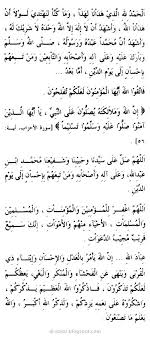 الْحَمْدُ لِلَّهِ الَّذِي هَدَانَا لِهَذَا ، وَمَا كُنَّا لِنَهْتَدِيَ لَوْلَا أَنْ
هَدَانَا اللهُ ، وَأَشْهَدُ أَنْ لَا إِلَهَ إِلَّا اللهُ وَحْدَهُ لَا شَرِيْكَ لَهُ ،
وَأَشْهَدُ أَنَّ مُحَمَّدًا عَبْدُهُ وَرَسُوْلُهُ ، صَلَّى اللهُ وَسَلَّمَ
وَبَارَكَ عَلَيْهِ وَعَلَى آلِهِ وَأَصْحَابِهِ وَالتَّابِعِيْنَ وَمَنْ تَبِعَهُمْ
بِإِحْسَانٍ إِلَى يَوْمِ الدِّيْنِ . أَمَّا بَعْدُ
فَاتَّقُوا اللهَ أَيُّهَا الْمُؤْمِنُوْنَ لَعَلَّكُمْ تُفْلِحُوْنَ .
﴿ إِنَّ اللهَ وَمَلَائِكَتَهُ يُصَلُّوْنَ عَلَى النَّبِيِّ ، يَا أَيُّهَا الَّذِيْنَ
آمَنُوا صَلُّوا عَلَيْهِ وَسَلِّمُوا تَسْلِيْمًا ﴾ (سورة الأحزاب، آية:
٥٦) .
اَللَّهُمَّ صَلِّ عَلَى سَيِّدِنَا وَحَبِيْبِنَا وَشَفِيْعِنَا مُحَمَّدٍ ابْنِ
عَبْدِ اللهِ وَعَلَى آلِهِ وَأَصْحَابِهِ وَمَنْ تَبِعَهُمْ بِإِحْسَانٍ إِلَى يَوْمِ
الدِّيْنِ .
اَللَّهُمَّ اغْفِرْ لِلْمُؤْمِنِيْنَ وَالْمُؤْمِنَاتِ ، وَالْمُسْلِمِيْنَ
وَالْمُسْلِمَاتِ ، الْأَحْيَاءِ مِنْهُمْ وَالْأَمْوَاتِ ، إِنَّكَ سَمِيْعٌ
قَرِيْبٌ مُجِيْبُ الدَّعَوَاتِ .
عِبَادَ اللهِ ... إِنَّ اللهَ يَأْمُرُ بِالْعَدْلِ وَالْإِحْسَانِ ، وَإِيْتَاءِ ذِي
الْقُرْبَى وَيَنْهَى عَنِ الْفَحْشَاءِ وَالْمُنْكَرِ وَالْبَغْيِ ، يَعِظُكُمْ
لَعَلَّكُمْ تَذَكَّرُوْنَ ، فَاذْكُرُوا اللهَ الْعَظِيْمَ يَذْكُرْكُمْ ،
وَاشْكُرُوْهُ عَلَى نِعَمِهِ يَزِدْكُمْ ، وَلَذِكْرُ اللهِ أَكْبَرُ ، وَاللهُ
يَعْلَمُ مَا تَصْنَعُوْنَ